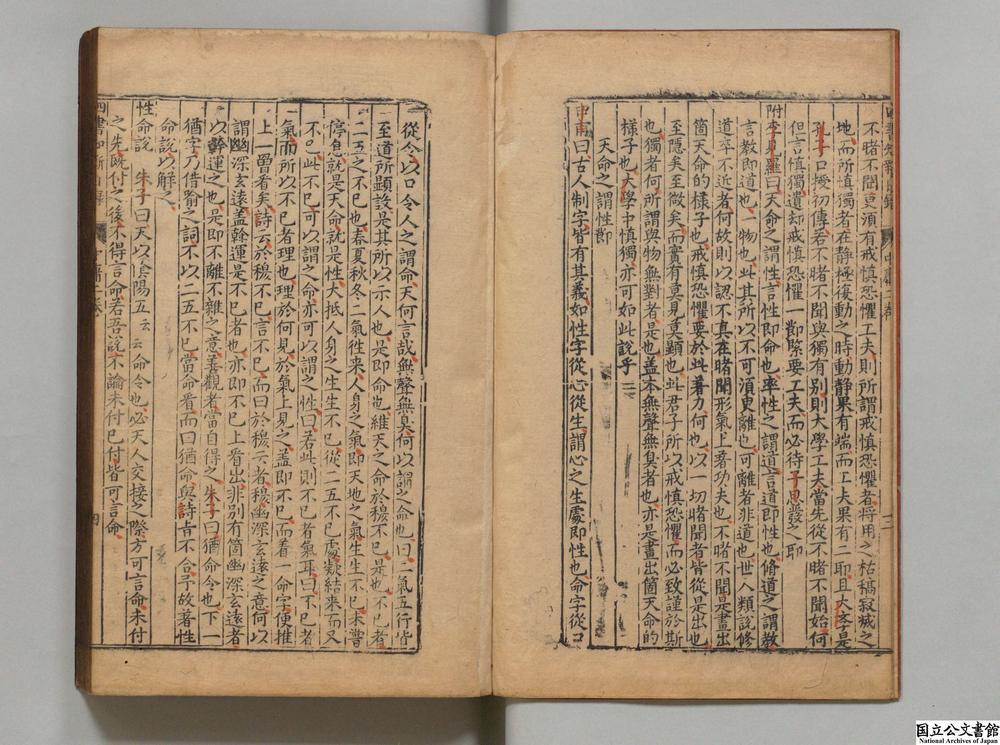 不睹不聞更須有戒慎恐懼工夫則所謂戒慎恐懼者將用之枯稿寂滅之
地而所慎獨者在靜極復動之時動靜果有端而工夫果有二耶且大學是
孔子口授初傳若不睹不聞與獨有別則大學工夫當先從不睹不聞始何
但言慎獨遺却戒慎恐懼一節緊要工夫而必待子思發之耶
附李見羅曰天命之謂性言性即命也率性之謂道言道即性也脩道之謂教
言教即道也一物也此其所以不可須臾離也可離者非道也世人類說修
道卒不近者何故則以認不真在睹聞形氣上著功夫也不睹不聞是畫出
箇天命的樣子也戒慎恐懼要於此著力何也以一切睹聞者皆從是出也
至隱矣至微矣而實有莫見莫顯也此君子所以戒慎恐懼而必致謹於斯
也獨者何所謂與物無對者是也蓋本無聲無臭者也亦是畫出箇天命的
樣子也大學中慎獨亦可如此說乎
天命之謂性節
甲甫曰古人制字皆有其義如性字從心從生謂心之生處即性也命字從口
從令以口令人之謂命天何言哉無聲無臭何以謂之命也曰二氣五行皆
至道所顯設是其所以示人也是即命也維天之命於穆不已是也不已者
二五之不已也春夏秋冬二氣徃來人身之氣即天地之氣生生不已未嘗
停息就是天命就是性大抵人身之生生不已從二五不已處凝結來而又
不已此不已可以謂之命亦可以謂之性曰若此則不已者氣耳曰不已者
氣而所以不已者理也理於何見於氣上見之蓋即不已而看一命字便推
上一層看矣詩云於穆不已言不已而曰於穆云者穆幽深玄遠之意何以
謂幽深玄遠蓋斡運是不已者也亦即不已上看出非別有箇幽深玄遠者
以斡運之也是即不離不雜之意善觀者當自得之朱子曰猶命令也下一
猶字乃借喻之詞不以二五不已當命看而曰猶命與詩旨不合予故著性
命說以解之
性命說 朱子曰天以陰陽五云云命令也必天人交接之際方可言命未付
之先既付之後不得言命若吾說不論未付已付皆可言命
四
国立公文書館
National Archives of Japan